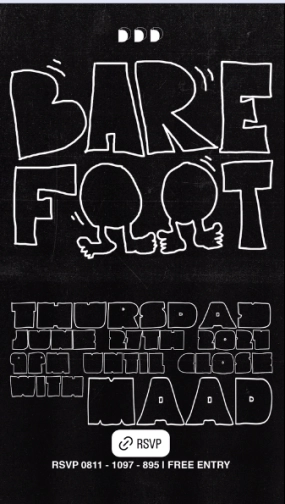 DDD
BARE
FOOT
THURSDAY
JUNE 27TH 2024
9PM UNTIL CLOSE
WITH MAAD
RSVP
RSVP 0811 - 1097 - 895 | FREE ENTRY